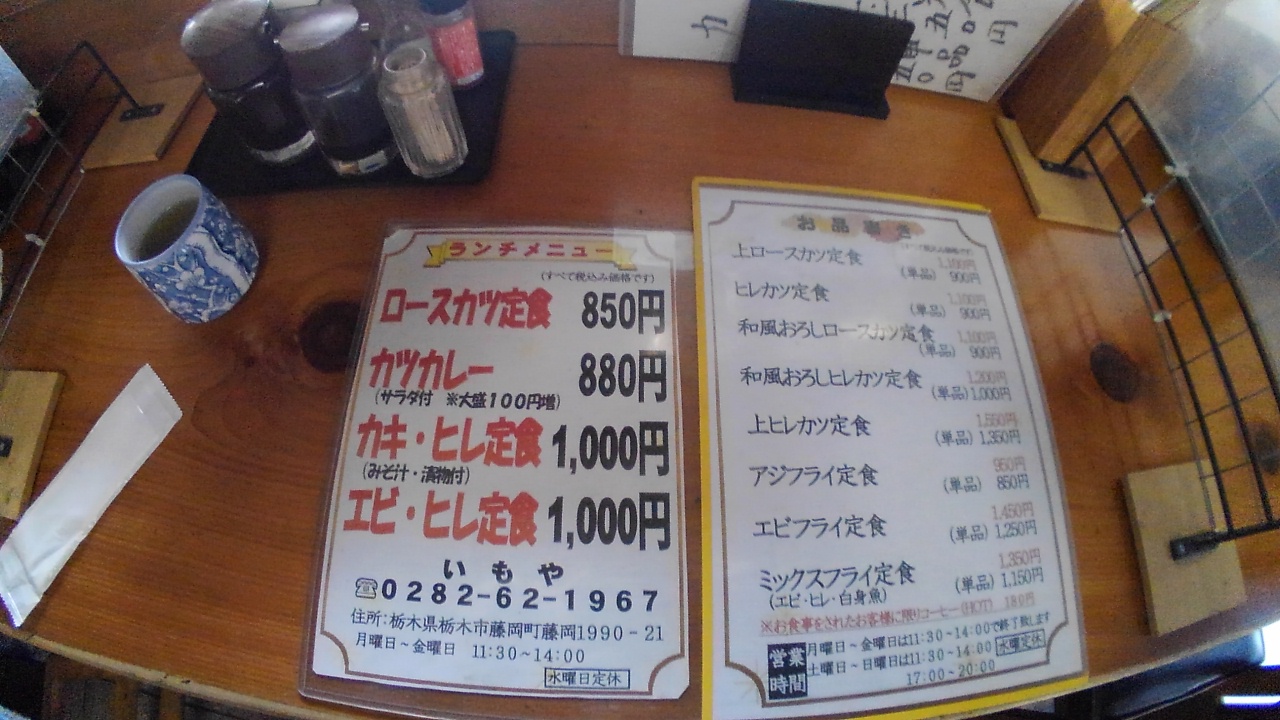 カ
ランチメニュー
(すべて税込み価格です)
ロースカツ定食 850円
カツカレー 880円
(サラダ付 ※大盛100円増)
カキ・ヒレ定食 1,000円
(みそ汁・漬物付)
エビ・ヒレ定食 1,000円
いもや
☎0282-62-1967
住所:栃木県栃木市藤岡町藤岡1990-21
月曜日~金曜日 11:30~14:00
水曜日定休
お品書き
(すべて税込み価格です)
上ロースカツ定食 1,100円
(単品) 900円
ヒレカツ定食 1,100円
(単品) 900円
和風おろしロースカツ定食 1,100円
(単品) 900円
和風おろしヒレカツ定食 1,200円
(単品) 1,000円
上ヒレカツ定食 1,550円
(単品) 1,350円
アジフライ定食 950円
(単品) 850円
エビフライ定食 1,450円
(単品) 1,250円
ミックスフライ定食 1,350円
(エビ・ヒレ・白身魚) (単品) 1,150円
※お食事をされたお客様に限りコーヒー(HOT) 180円
営業時間
月曜日~金曜日は11:30~14:00で終了致します
土曜日~日曜日は11:30~14:00 水曜定休
17:00~20:00